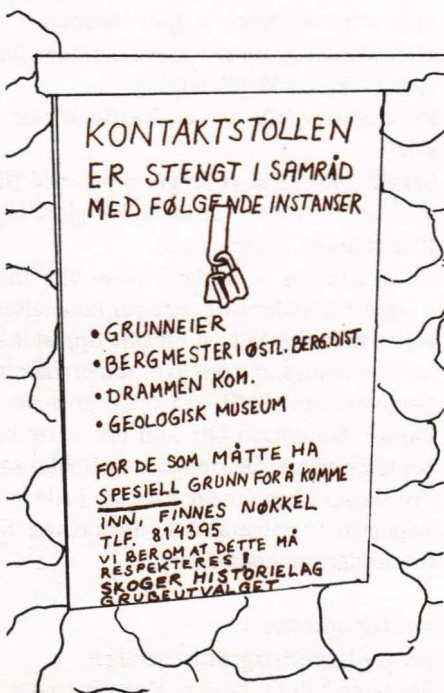 KONTAKTSTOLLEN
ER STENGT I SAMRÅD
MED FØLGENDE INSTANSER
• GRUNNEIER
• BERGMESTER I ØSTL. BERG.DIST.
• DRAMMEN KOM.
• GEOLOGISK MUSEUM
FOR DE SOM MÅTTE HA
SPESIELL GRUNN FOR Å KOMME
INN FINNES NØKKEL
TLF. 814395
VI BER OM AT DETTE MÅ
RESPEKTERES!
SKOGER HISTORIELAG
GRUBEUTVALGET